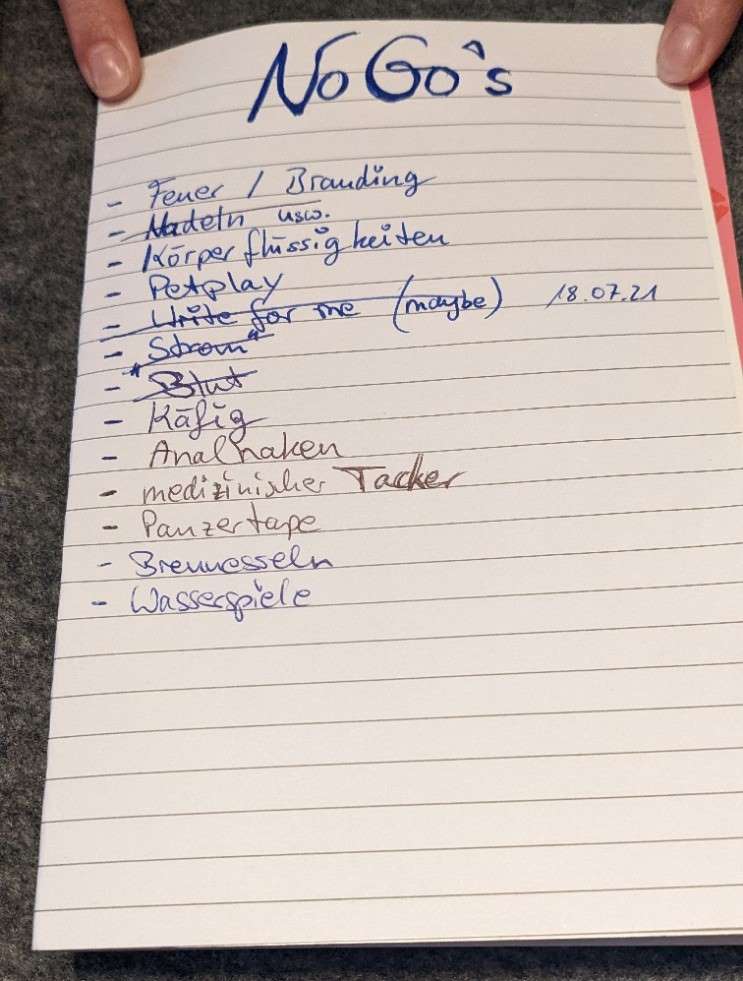 No Go's
- Feuer / Branding
- Nadeln usw.
- Körperflüssigkeiten
- Petplay
- Write for me (maybe) 18.07.21
- "Strom"
- "Blut"
- Käfig
- Analhaken
- medizinischer Tacker
- Panzertape
- Brennesseln
- Wasserspiele